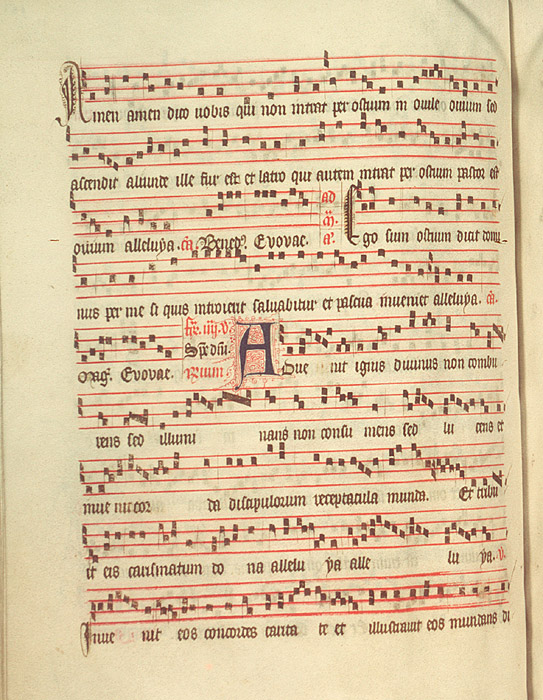 Amen amen dico uobis qui non intrat per ostium in ouile ouium sed
ascendit aliunde ille fur est et latro qui autem intrat per ostium pastor est
ouium alleluya. cā. Bened̄. Evovae. ad m̄. a. Ego sum ostium dicit domi
nus per me si quis introierit saluabitur et pascua inueniet alleluya. cā.
Maḡ. Evovae. Sp̄c dn̄i. Adue nit ignis diuinus non combu
rens sed illumi nans non consu mens sed lu cens et
inue nit cor da discipulorum receptacula munda. Et tribu
it eis carismatum do na allelu ya alle lu ya. v.
Inue nit eos concordes carita te et illustrauit eos mundans di